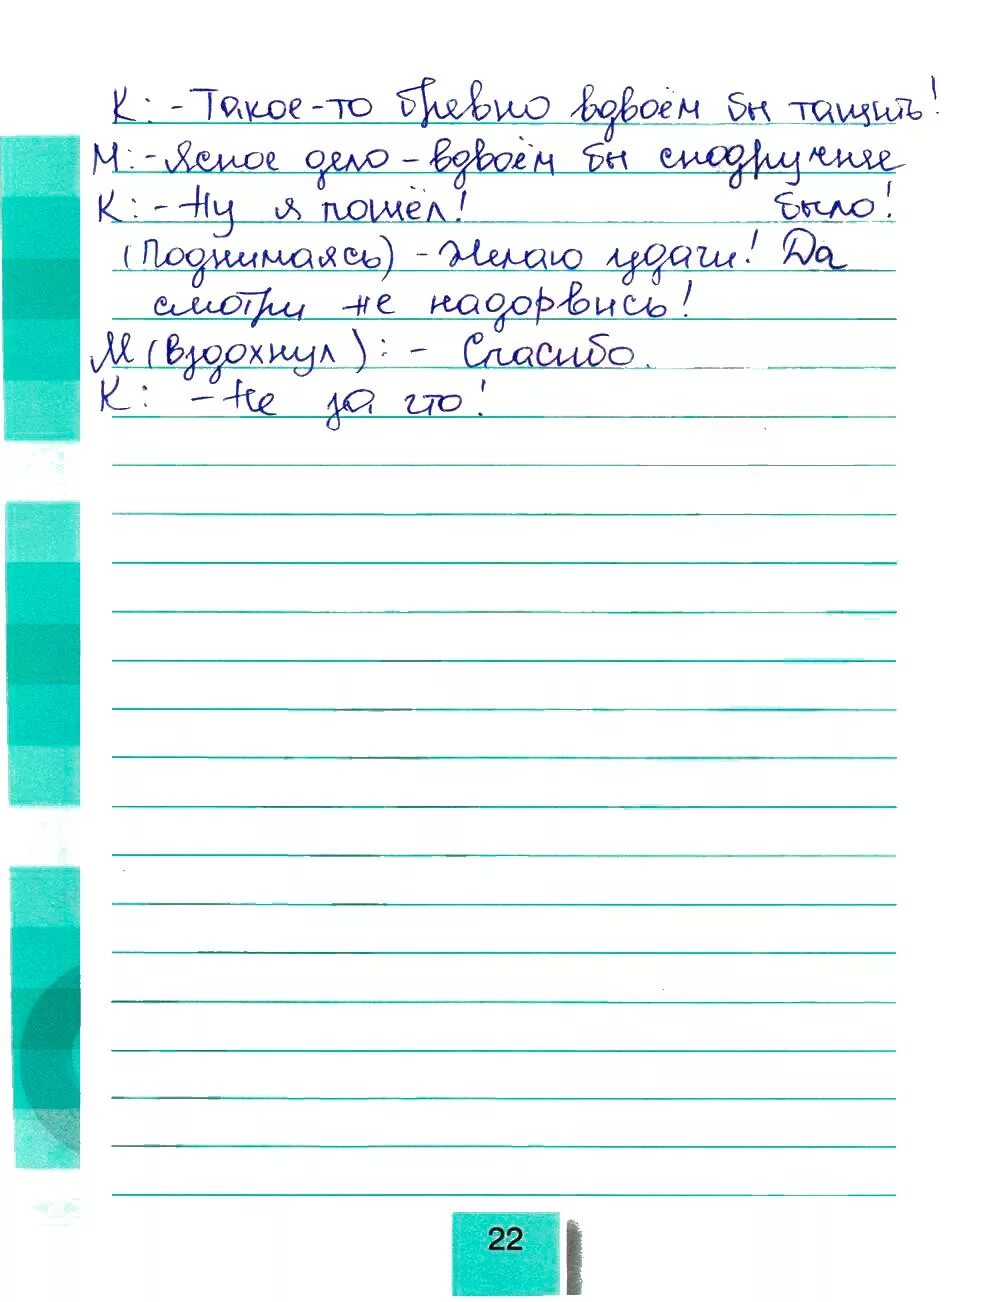 К: - Такое-то бревно вдвоём бы тащить!
М: - Ясное дело - вдвоём бы сподручнее
К: - Ну я пошёл! было!
(Поднимаясь) - Желаю удачи! Да
смотри не надорвись!
М (Вздохнул): - Спасибо.
К: - Не за что!
22